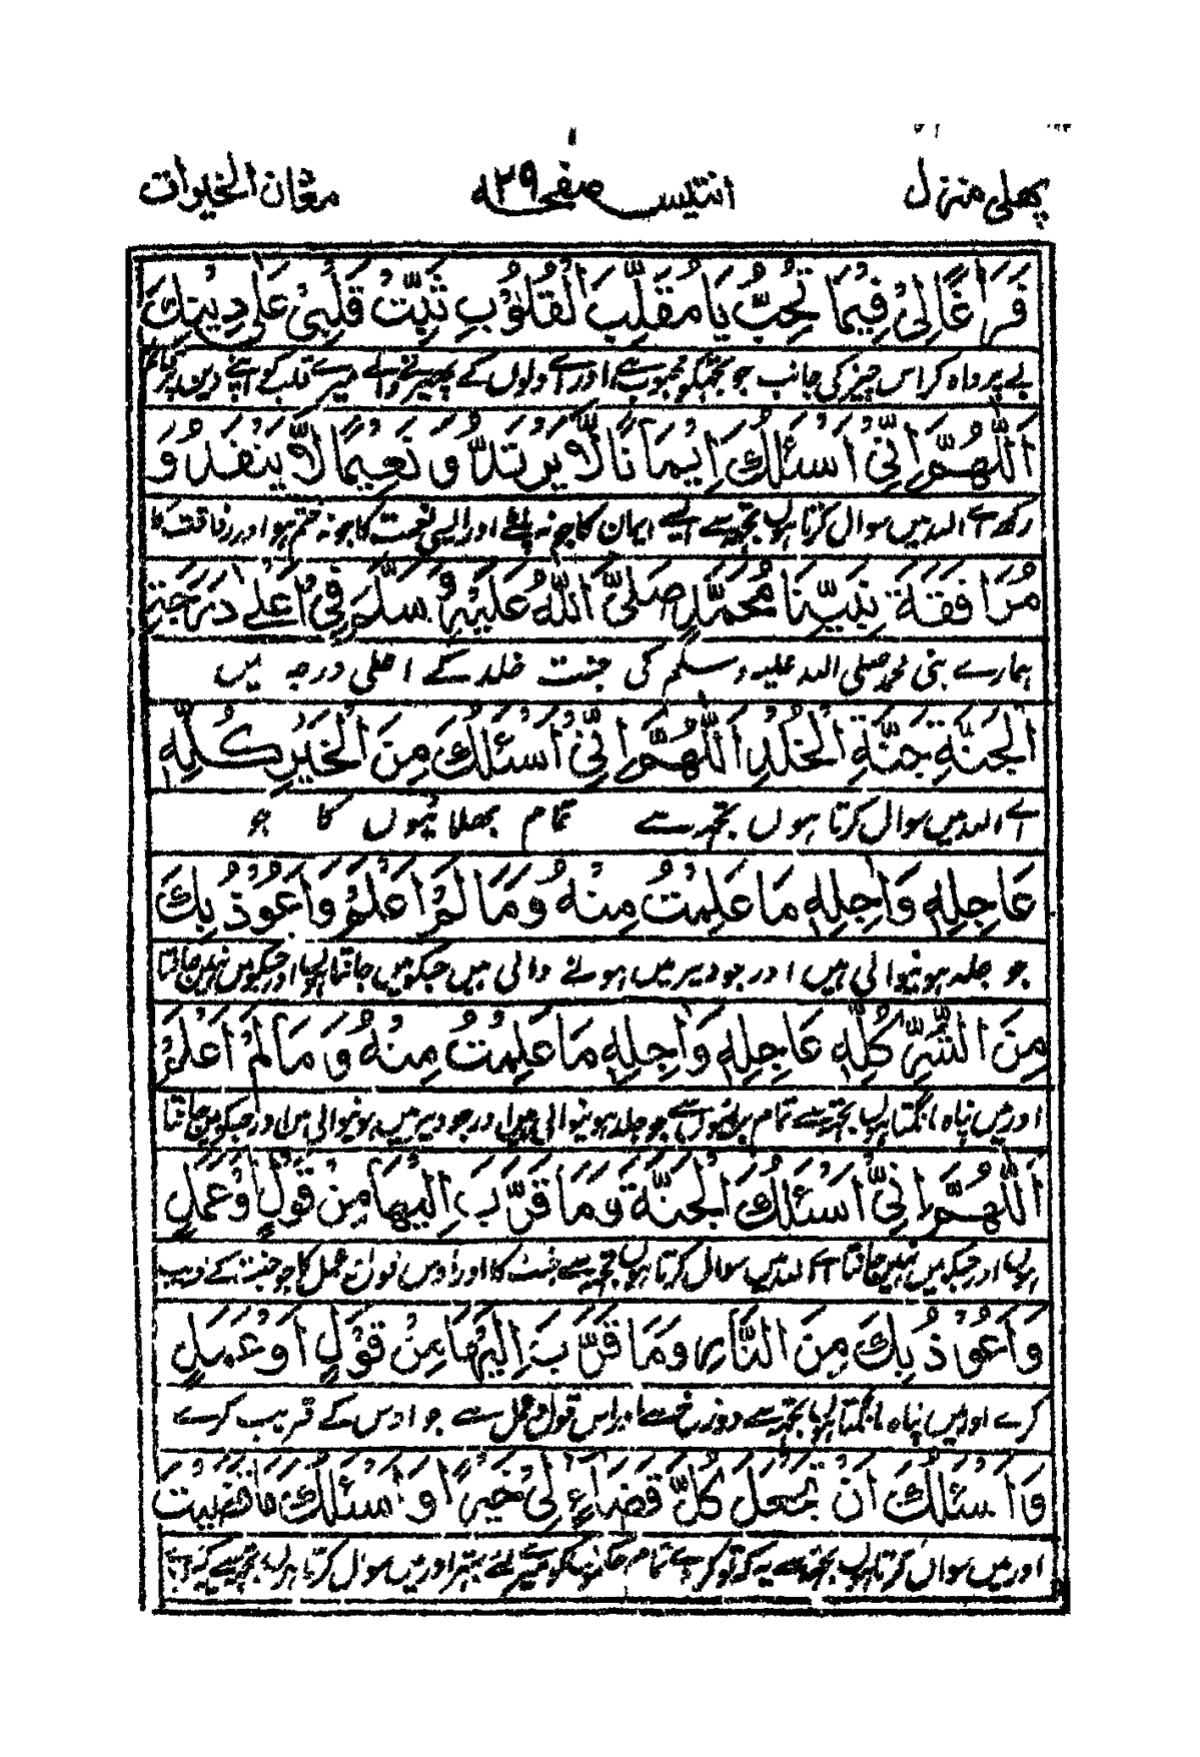 پہلی منزل انتیس صفحہ ۲۹ مغان الخیرات
فَرَاغًا لِیْ فِیْمَا تُحِبُّ یَا مُقَلِّبَ الْقُلُوْبِ ثَبِّتْ قَلْبِیْ عَلٰی دِیْنِكَ
بے پرواہ کر اس چیز کی جانب جو تجھکو محبوب ہے اور اے دلوں کے پھیرنے والے میرے قلب کو اپنے دین پر قائم
اَللّٰهُمَّ اِنِّیْ اَسْئَلُكَ اِیْمَانًا لَّا یَرْتَدُّ وَ نَعِیْمًا لَّا یَنْفَدُ وَ
رکھ اے اللہ میں سوال کرتا ہوں تجھ سے ایسے ایمان کا جو نہ پلٹے اور ایسی نعمت کا جو نہ ختم ہو اور رفاقت کا
مُرَافَقَةَ نَبِیِّنَا مُحَمَّدٍ صَلَّی اللّٰهُ عَلَیْهِ وَسَلَّمَ فِیْ اَعْلٰی دَرَجَةِ
ہمارے نبی محمد صلی اللہ علیہ وسلم کی جنت خلد کے اعلی درجہ میں
الْجَنَّةِ جَنَّةِ الْخُلْدِ اَللّٰهُمَّ اِنِّیْ اَسْئَلُكَ مِنَ الْخَیْرِ كُلِّهٖ
اے اللہ میں سوال کرتا ہوں تجھ سے تمام بھلائیوں کا جو
عَاجِلِهٖ وَاٰجِلِهٖ مَا عَلِمْتُ مِنْهُ وَمَا لَمْ اَعْلَمْ وَاَعُوْذُ بِكَ
جو جلد ہونیوالی ہیں اور جو دیر میں ہونے والی ہیں جنکو میں جانتا ہوں اور جنکو میں نہیں جانتا
مِنَ الشَّرِّ كُلِّهٖ عَاجِلِهٖ وَاٰجِلِهٖ مَا عَلِمْتُ مِنْهُ وَمَا لَمْ اَعْلَمْ
اور میں پناہ مانگتا ہوں تجھ سے تمام برائیوں سے جو جلد ہونیوالی ہیں اور جو دیر میں ہونیوالی ہیں اور جنکو میں جانتا
اَللّٰهُمَّ اِنِّیْ اَسْئَلُكَ الْجَنَّةَ وَمَا قَرَّبَ اِلَیْهَا مِنْ قَوْلٍ اَوْ عَمَلٍ
ہوں اور جنکو میں نہیں جانتا اے اللہ میں سوال کرتا ہوں تجھ سے جنت کا اور اوس قول و عمل کا جو جنت کے قریب
وَاَعُوْذُ بِكَ مِنَ النَّارِ وَمَا قَرَّبَ اِلَیْهَا مِنْ قَوْلٍ اَوْ عَمَلٍ
کرے اور میں پناہ مانگتا ہوں تجھ سے دوزخ سے اور اس قول و عمل سے جو اوس کے قریب کرے
وَاَسْئَلُكَ اَنْ تَجْعَلَ كُلَّ قَضَاءٍ لِیْ خَیْرًا وَ اَسْئَلُكَ مَا قَضَیْتَ
اور میں سوال کرتا ہوں تجھ سے یہ کہ تو کر دے تمام حکموں کو میرے لئے بہتر اور میں سوال کرتا ہوں تجھ سے کہ جو